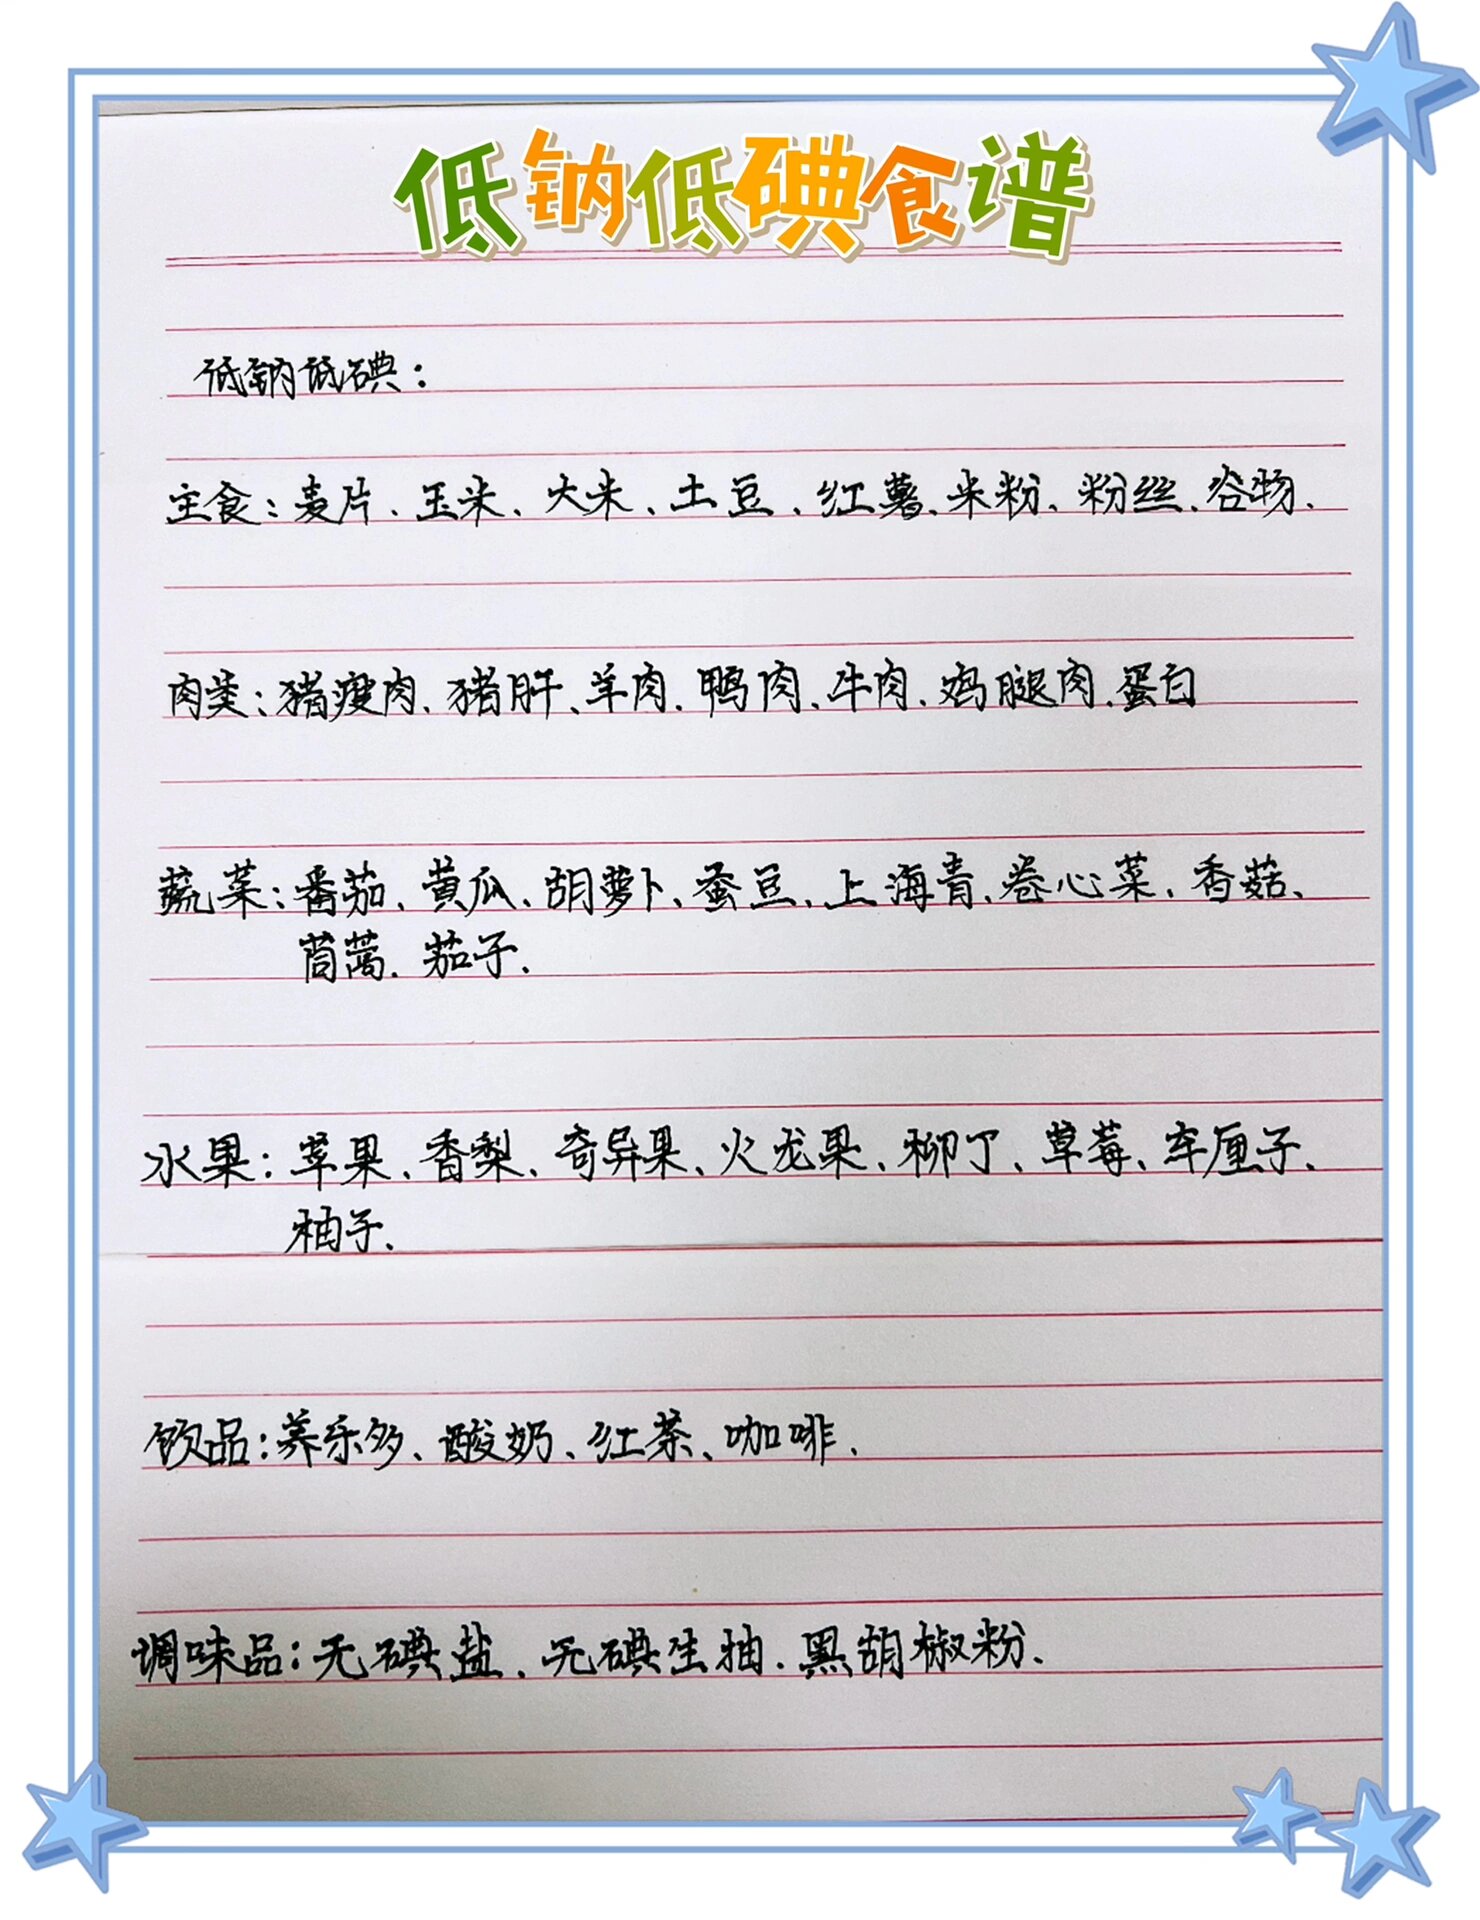 低钠低碘食谱
低钠低碘：
主食：麦片、玉米、大米、土豆、红薯、米粉、粉丝、谷物、
肉类：猪瘦肉、猪肝、羊肉、鸭肉、牛肉、鸡腿肉、蛋白
蔬菜：番茄、黄瓜、胡萝卜、蚕豆、上海青、卷心菜、香菇、
茼蒿、茄子、
水果：苹果、香梨、奇异果、火龙果、柳丁、草莓、车厘子、
柚子、
饮品：养乐多、酸奶、红茶、咖啡、
调味品：无碘盐、无碘生抽、黑胡椒粉、